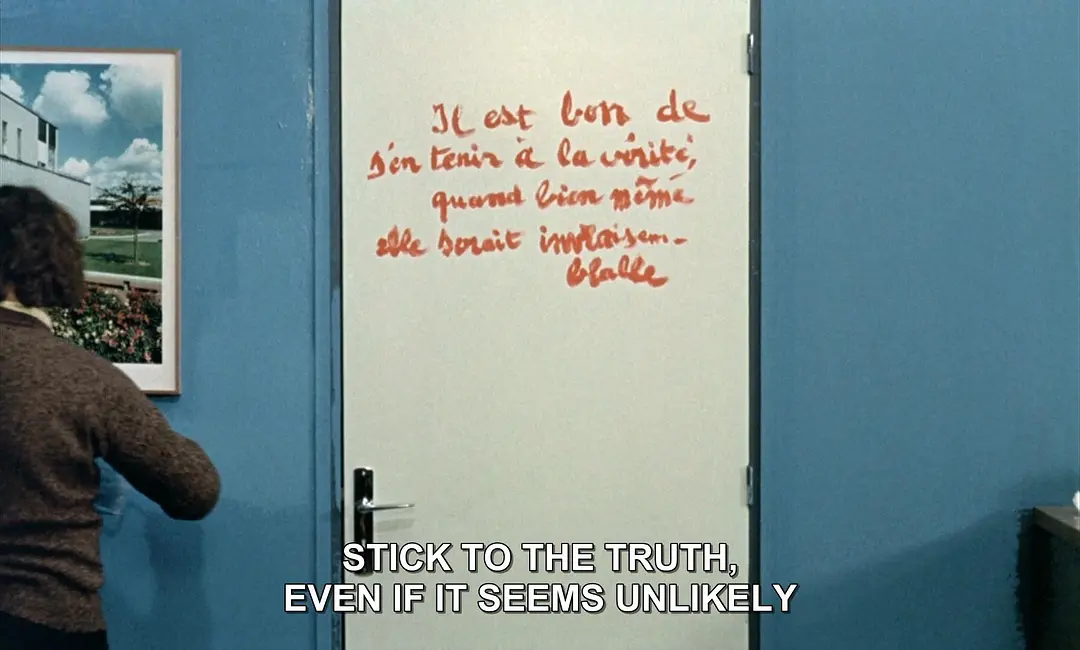 Il est bon de
s'en tenir à la vérité,
quand bien même
elle serait invraisem-
blable
STICK TO THE TRUTH,
EVEN IF IT SEEMS UNLIKELY